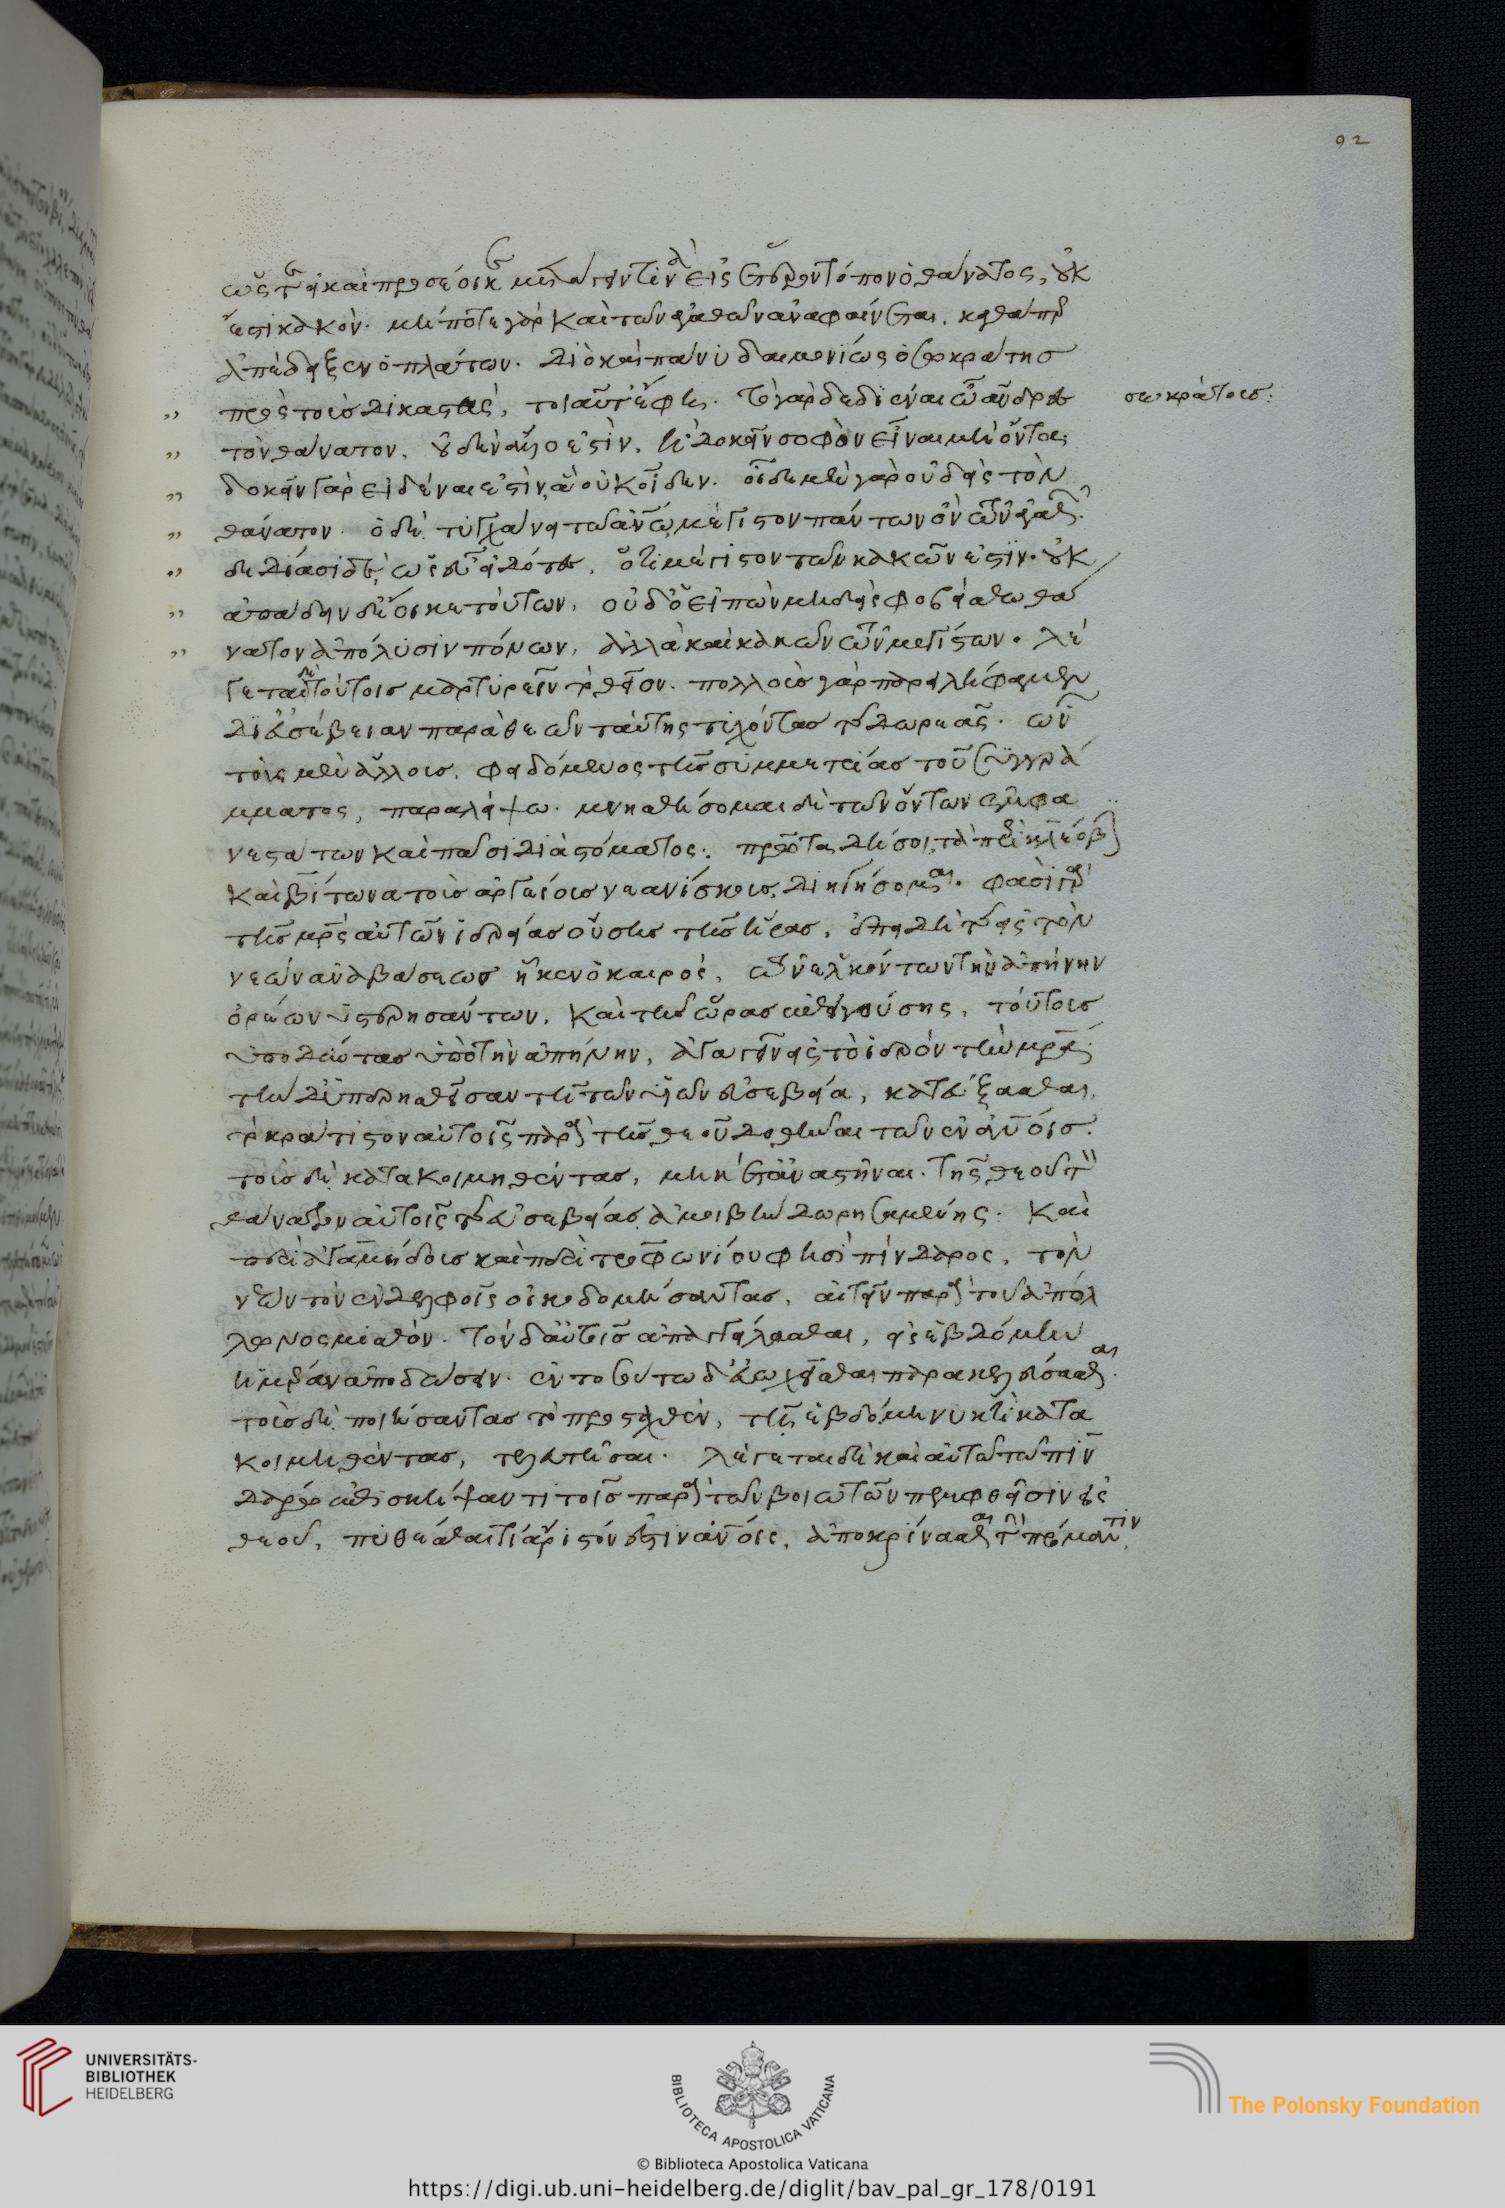 ὥστ' εἰ καὶ προσέοικε μετάγειν τινὰ εἰς ἕτερον τόπον ὁ θάνατος, οὐκ
ἔστι κακόν. μήποτε γὰρ καὶ τῶν ἀγαθῶν ἀναφαίνεται. καθάπερ
ἀπέδειξεν ὁ πλάτων. διὸ καὶ πάνυ δαιμονίως ὁ σωκράτης
πρὸς τοὺς δικαστὰς, τοιαῦτ' ἔφη. τὸ γὰρ δεδιέναι ὦ ἄνδρες
σωκράτους:
τὸν θάνατον, οὐδὲν ἄλλο ἐστὶν, ἢ δοκεῖν σοφὸν εἶναι μὴ ὄντα·
δοκεῖν γὰρ εἰδέναι ἐστὶν, ἃ οὐκ οἶδεν. οἶδε μὲν γὰρ οὐδεὶς τὸν
θάνατον. ὁ δὲ τυγχάνει τῶ ἀνθρώπω μέγιστον πάντων ὂν τῶν ἀγαθῶν·
δεδίασι δὲ, ὡς εὖ εἰδότες, ὅτι μέγιστον τῶν κακῶν ἐστὶν. οὐκ
ἀπάδειν δ' ἔοικε τούτων, οὐδ' ὁ εἰπὼν μηδεὶς φοβείσθω θά
νατον ἀπόλυσιν πόνων, ἀλλὰ καὶ κακῶν τῶν μεγίστων. λέ
γεται δὲ τούτοις μαρτυρεῖν τὸ θεῖον. πολλοὺς γὰρ παρειλήφαμεν
δι' εὐσέβειαν παρὰ θεῶν ταύτης τυχόντας τῆς δωρεᾶς. ὧν
τοὺς μὲν ἄλλους, φειδόμενος τῆς συμμετρίας τοῦ συγγρά
μματος, παραλείψω. μνησθήσομαι δὲ τῶν ὄντων ἐμφα
νεστάτων καὶ πᾶσι διὰ στόματος. πρῶτα δή σοι, τὰ περὶ κλέοβιν
καὶ βίτωνα τοὺς ἀργείους νεανίσκους διηγήσομαι. φασὶ γὰρ
τῆς μητρὸς αὐτῶν ἱερείας οὔσης τῆς ἥρας, ἐπειδὴ τῆς εἰς τὸν
νεὼν ἀναβάσεως ἧκεν ὁ καιρός, τῶν ἑλκόντων τὴν ἀπήνην
ὀρέων ὑστερησάντων, καὶ τῆς ὥρας ἐπειγούσης, τούτους
ὑποδύντας ὑπὸ τὴν ἀπήνην, ἀγαγεῖν εἰς τὸ ἱερὸν τὴν μητέρα·
τὴν δ' ὑπερησθεῖσαν τῆ τῶν υἱῶν εὐσεβεία, κατεύξασθαι,
τὸ κράτιστον αὐτοῖς παρὰ τῆς θεοῦ δοθῆναι τῶν ἐν ἀνθρώποις.
τοὺς δὲ κατακοιμηθέντας, μηκέτ' ἀναστῆναι. τῆς θεοῦ τὸν
θάνατον αὐτοῖς τῆς εὐσεβείας ἀμοιβὴν δωρησαμένης. καὶ
περὶ ἀγαμήδους καὶ περὶ τροφωνίου φησὶ πίνδαρος, τὸν
νεὼν τὸν ἐν δελφοῖς οἰκοδομήσαντας, αἰτεῖν παρὰ τοῦ ἀπόλ
λωνος μισθόν. τὸν δ' αὐτοῖς ἐπαγγείλασθαι, εἰς ἑβδόμην
ἡμέραν ἀποδώσειν. ἐν τοσούτω δ' εὐωχεῖσθαι παρακελεύσασθαι.
τοὺς δὲ ποιήσαντας τὸ προσταχθὲν, τῆ ἑβδόμη νυκτὶ κατα
κοιμηθέντας, τελευτῆσαι. λέγεται δὲ καὶ αὐτῶ τῶ πιν
δάρω ἐπισκήψαντι τοῖς παρὰ τῶν βοιωτῶν πεμφθεῖσιν εἰς
θεοῦ, πυθέσθαι τί ἄριστόν ἐστιν ἀνθρώποις, ἀποκρίνασθαι τὴν πρόμαντιν
92
UNIVERSITÄTS-
BIBLIOTHEK
HEIDELBERG
BIBLIOTECA APOSTOLICA VATICANA
The Polonsky Foundation
© Biblioteca Apostolica Vaticana
https://digi.ub.uni-heidelberg.de/diglit/bav_pal_gr_178/0191